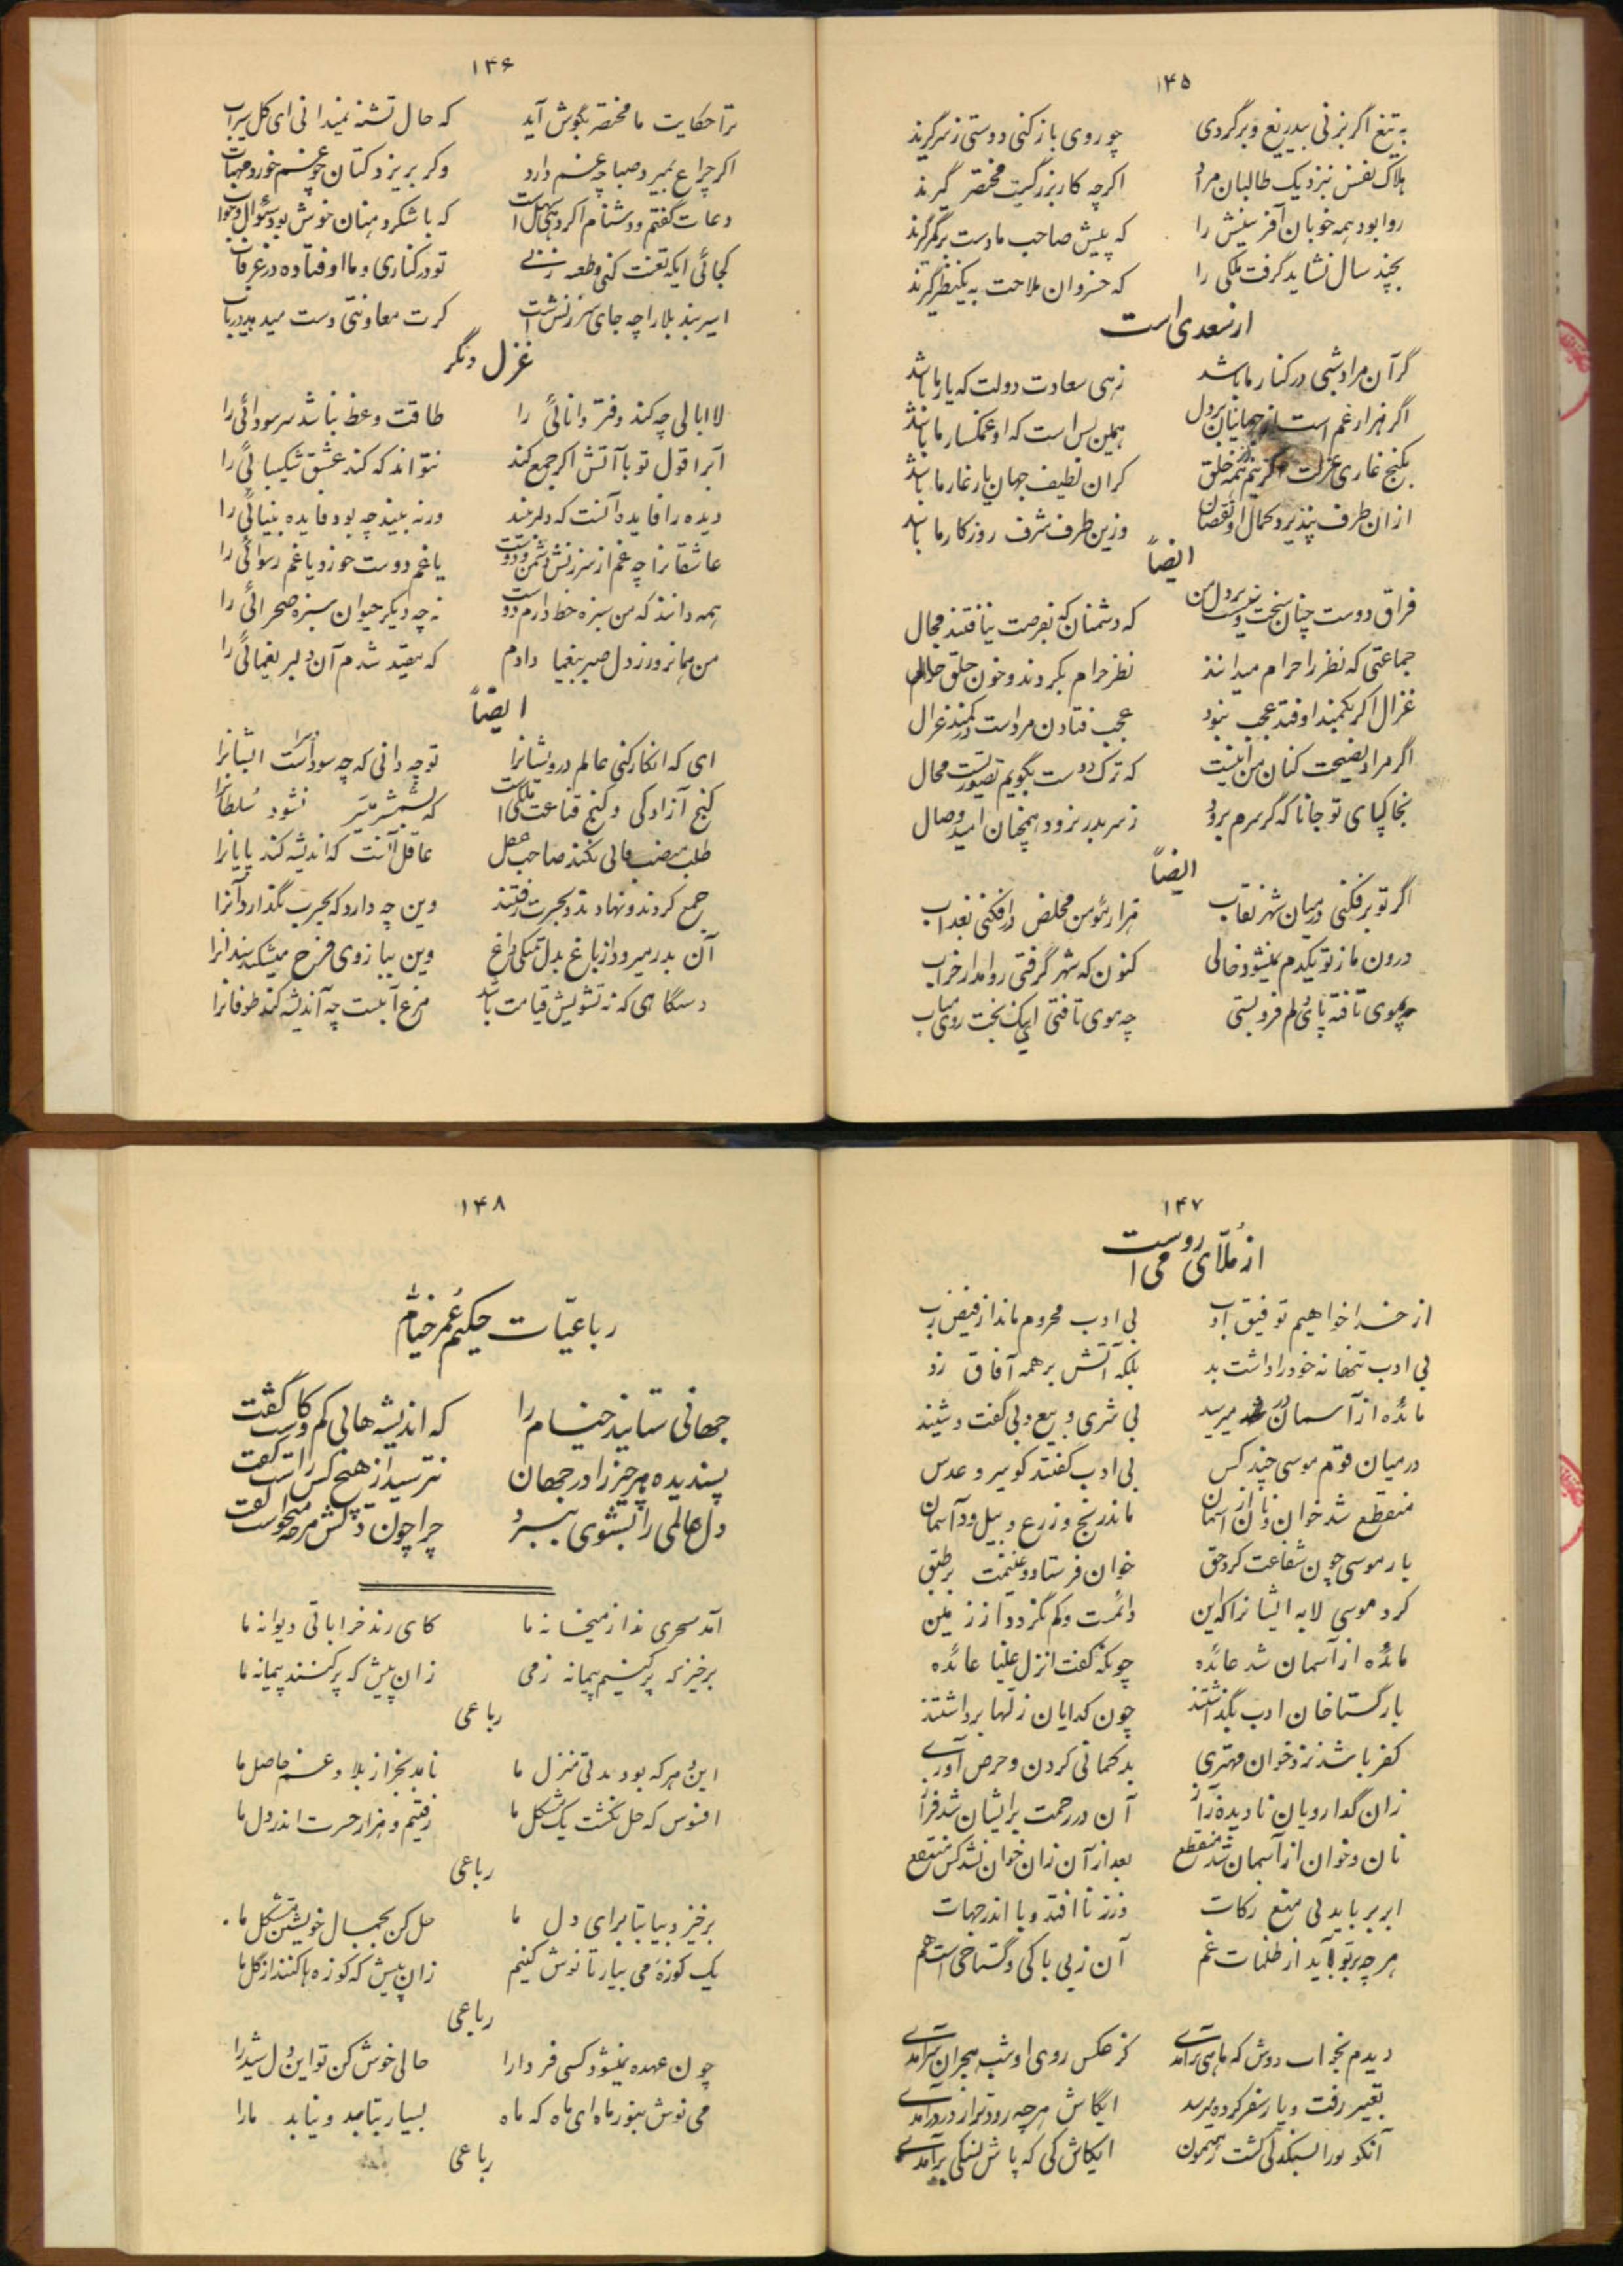 ۱۴۵
به تیغ اگر بزنی بیدریغ و برگردی چو روی باز کنی دوستی ز سر گیرند
هلاک نفس بنزدیک طالبان مراد اگرچه کار بزرگست مختصر گیرند
روا بود همه خوبان آفرینش را که پیش صاحب ما دست بر کمر گیرند
بچند سال نشاید گرفت ملکی را که خسروان ملاحت به یکنظر گیرند
از سعدی است
گر آن مراد شبی در کنار ما باشد زهی سعادت دولت که یار ما باشد
اگر هزار غم است از جهانیان بر دل همین بس است که او غمگسار ما باشد
بکنج غاری عزلت گزینم از همه خلق گر ان لطیف جهان یار غار ما باشد
ازان طرف نپذیرد کمال او نقصان وزین طرف شرف روزگار ما باشد
ایضاً
فراق دوست چنان سخت نیست بر دل من که دشمنان که بفرصت نیافتند مجال
جماعتی که نظر را حرام میدانند نظر حرام بکردند و خون خلق حلال
غزال اگر بکمند اوفتد عجب نبود عجب فتادن مرد است در کمند غزال
اگر مراد نصیحت کنان من اینست که ترک دوست بگویم تصوریست محال
بخاکپای تو جانا که گر سرم برود ز سر بدر نرود همچنان امید وصال
ایضاً
اگر تو برفکنی در میان شهر نقاب هزار مؤمن مخلص درافکنی بعذاب
درون ما ز تو یکدم نمیشود خالی کنون که شهر گرفتی روا مدار خراب
بموی تافته پای دلم فرو بستی چه موی تافتی ای نیک بخت روی متاب
۱۴۶
ترا حکایت ما مختصر بگوش آید که حال تشنه نمیدانی ای گل سیراب
اگر چراغ بمیرد صبا چه غم دارد وگر بریزد کتان چو غم خورد مهتاب
دعات گفتم و دشنام اگر دهی سهل است که با شکر دهنان خوش بود سئوال و جواب
کجائی ایکه تعنت کنی و طعنه زنی تو در کناری و ما اوفتاده در غرقاب
اسیر بند بلا را چه جای سرزنش است گرت معاونتی دست میدهد دریاب
غزل دیگر
لاابالی چه کند دفتر دانائی را طاقت وعظ نباشد سر سودائی را
آب را قول تو با آتش اگر جمع کند نتواند که کند عشق شکیبائی را
دیده را فایده آنست که دلبر بیند ورنه بیند چه بود فایده بینائی را
عاشقانرا چه غم از سرزنش دشمن و دوست یا غم دوست خورد یا غم رسوائی را
همه دانند که من سبزه خط دارم دوست نه چه دیگر حیوان سبزه صحرائی را
من همانروز ز دل صبر بیغما دادم که مقید شدم آن دلبر یغمائی را
ایضاً
ای که انکار کنی عالم درویشانرا تو چه دانی که چه سودا و سر است ایشانرا
گنج آزادگی و کنج قناعت ملکی است که بشمشیر میسر نشود سلطانرا
طلب منصب فانی نکند صاحب عقل عاقل آنست که اندیشه کند پایانرا
جمع کردند و نهادند و بحسرت رفتند وین چه دارد که بحسرت بگذارد آنرا
آن بدر میرود از باغ بدلتنگی و داغ وین ببازوی فرح میشکند زندانرا
دستگاهی که نه تشویش قیامت باشد مرغ آبیست چه اندیشه کند طوفانرا
۱۴۷
از ملّای رومی است
از خدا خواهیم توفیق ادب بی ادب محروم ماند از فیض رب
بی ادب تنها نه خود را داشت بد بلکه آتش بر همه آفاق زد
مائده از آسمان در میرسید بی شری و بیع و بی گفت و شنید
در میان قوم موسی چند کس بی ادب گفتند کو سیر و عدس
منقطع شد خوان و نان از آسمان ماند رنج و زرع و بیل و داسمان
باز موسی چون شفاعت کرد حق خوان فرستاد و غنیمت بر طبق
کرد موسی لابه ایشانرا که این دائمست و کم نگردد از زمین
مائده از آسمان شد عائده چونکه گفت انزل علینا مائده
باز گستاخان ادب بگذاشتند چون گدایان زلها برداشتند
کفر باشد نزد خوان مهتری بدگمانی کردن و حرص آوری
زان گدارویان نادیده ز آز آن در رحمت بر ایشان شد فراز
نان و خوان از آسمان شد منقطع بعد از آن زان خوان نشد کس منتفع
ابر برناید پی منع زکات وز زنا افتد وبا اندر جهات
هر چه بر تو آید از ظلمات غم آن ز بی باکی و گستاخی است هم
دیدم بخواب دوش که ماهی برآمدی کز عکس روی او شب هجران سر آمدی
تعبیر رفت و یار سفر کرده میرسد ایکاش هر چه زودتر از در درآمدی
آنکو تو را بسنگدلی گشت رهنمون ایکاش کی که پاش بسنگی برآمدی
۱۴۸
رباعیّات حکیم عمر خیّام
جهانی ستایند خیّام را که اندیشه هائی کم و کاست گفت
پسندیده هر چیز را در جهان نترسید از هیچ کس راست گفت
دل عالمی را بشوی ببرد چرا چون دلش هر چه میخواست گفت
آمد سحری ندا ز میخانه ما کای رند خراباتی دیوانه ما
برخیز که پر کنیم پیمانه ز می زان پیش که پر کنند پیمانه ما
رباعی
این دهر که بود مدتی منزل ما نامد بجز از بلا و غم حاصل ما
افسوس که حل نگشت یک مشکل ما رفتیم و هزار حسرت اندر دل ما
رباعی
برخیز و بیا بتا برای دل ما حل کن بجمال خویشتن مشکل ما
یک کوزه می بیار تا نوش کنیم زان پیش که کوزه ها کنند از گل ما
رباعی
چون عهده نمیشود کسی فردا را حالی خوش کن تو این دل شیدا را
می نوش بنور ماه ای ماه که ماه بسیار بتابد و نیابد ما را
رباعی